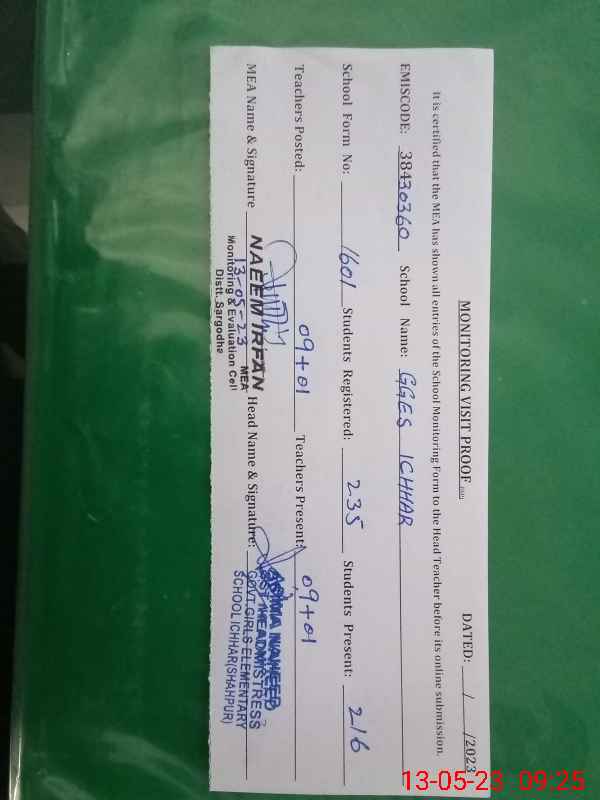 MONITORING VISIT PROOF
DATED: ___/___/2023
it is certified that the MEA has shown all entries of the School Monitoring Form to the Head Teacher before its online submission.
EMISCODE: 38430360 School Name: GGES ICHHAR
School Form No: 1601 Students Registered: 235 Students Present: 216
Teachers Posted: 09+01 Teachers Present: 09+01
MEA Name & Signature Head Name & Signature:
NAEEM IRFAN
MEA
13-05-23
Monitoring & Evaluation Cell
Distt. Sargodha
HEADMISTRESS
GOVT. GIRLS ELEMENTARY
SCHOOL ICHHAR (SHAHPUR)
13-05-23 09:25